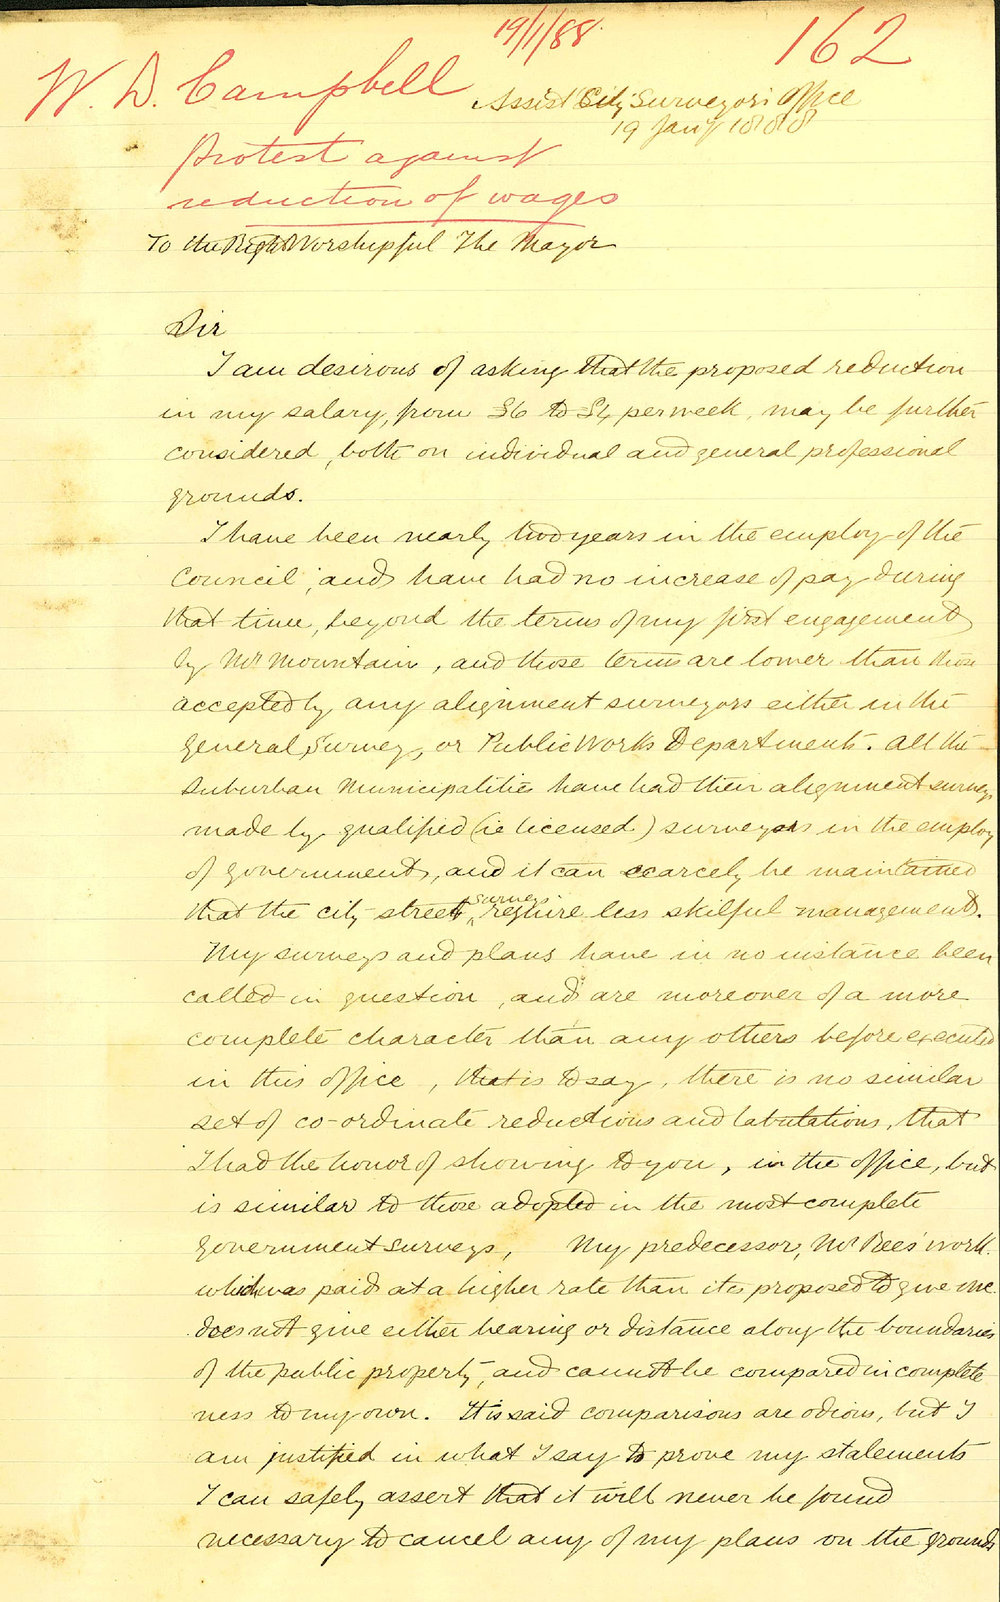 19/1/88.
162
W. D. Campbell
Assist City Surveyors' Office
19 Jany 1888
Protest against
reduction of wages
To the Right Worshipful The Mayor
Sir
I am desirous of asking that the proposed reduction
in my salary, from £6 to £4 per week, may be further
considered, both on individual and general professional
grounds.
I have been nearly two years in the employ of the
Council, and have had no increase of pay during
that time, beyond the terms of my first engagement
by Mr Mountain, and those terms are lower than those
accepted by any alignment surveyors either in the
General Survey, or Public Works Departments. All the
Suburban Municipalities have had their alignment surveys
made by qualified (ie licensed) surveyors in the employ
of government, and it can scarcely be maintained
that the city street surveys require less skilful management.
My surveys and plans have in no instance been
called in question, and are moreover of a more
complete character than any others before executed
in this office, that is to say, there is no similar
set of co-ordinate reductions and tabulations, that
I had the honor of showing to you, in the office, but
is similar to those adopted in the most complete
government surveys, My predecessor, Mr Rees' work.
which was paid at a higher rate than it is proposed to give me
does not give either bearing or distance along the boundaries
of the public property, and cannot be compared in complete
ness to my own. It is said comparisons are odious, but I
am justified in what I say to prove my statements
I can safely assert that it will never be found
necessary to cancel any of my plans on the grounds